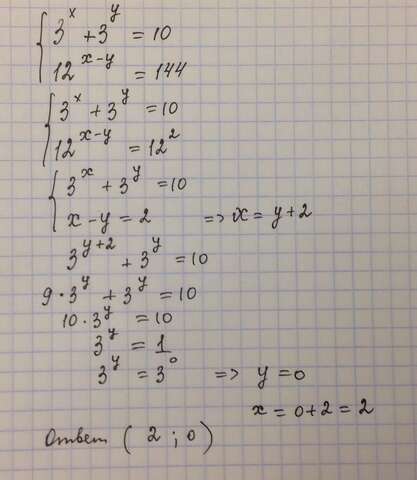 { 3^x + 3^y = 10
12^(x-y) = 144
{ 3^x + 3^y = 10
12^(x-y) = 12^2
{ 3^x + 3^y = 10
x - y = 2 => x = y + 2
3^(y+2) + 3^y = 10
9 · 3^y + 3^y = 10
10 · 3^y = 10
3^y = 1
3^y = 3^0 => y = 0
x = 0 + 2 = 2
Ответ ( 2 ; 0 )